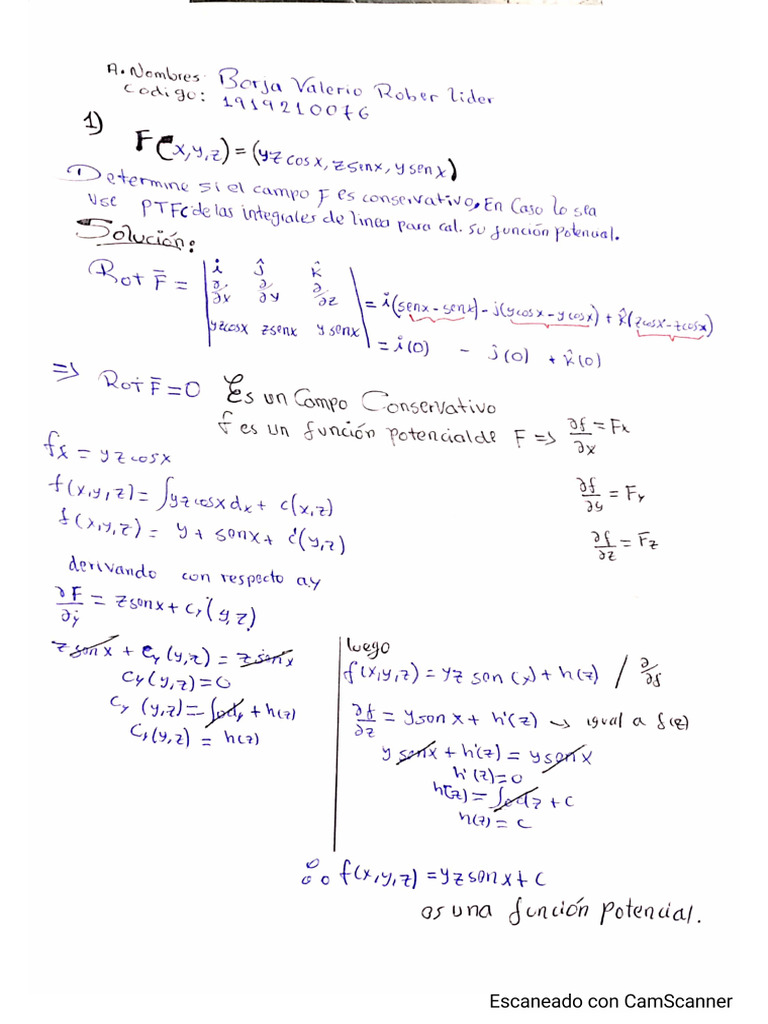 A. Nombres: Borja Valerio Rober Lider
Codigo: 1919210076
1) F(x,y,z) = (yz cosx, z senx, y senx)
Determine si el campo F es conservativo, En Caso lo sea
Use PTFC de las integrales de linea para cal. su función potencial.
Solución:
Rot F̅ = | î ĵ k̂ |
| ∂/∂x ∂/∂y ∂/∂z | = i(senx - senx) - j(ycosx - ycosx) + k̂(zcosx - zcosx)
| yzcosx zsenx ysenx | = i(0) - ĵ(0) + k̂(0)
=> Rot F̅ = 0 Es un Campo Conservativo
f es un función potencial de F => ∂f/∂x = Fx
fx = yz cosx
∂f/∂y = Fy
f(x,y,z) = ∫yz cosx dx + c(x,z)
f(x,y,z) = y + senx + c(y,z)
∂f/∂z = Fz
derivando con respecto a y
∂F/∂y = z senx + cy'(y,z)
z senx + cy(y,z) = z senx
cy(y,z) = 0
cy(y,z) = ∫ody + h(z)
cy(y,z) = h(z)
luego
f(x,y,z) = yz sen(x) + h(z) / ∂/∂f
∂f/∂z = y senx + h'(z) -> igual a f(z)
y senx + h'(z) = y senx
h'(z) = 0
h(z) = ∫odz + c
h(z) = c
∴ f(x,y,z) = yz senx + c
es una función potencial.
Escaneado con CamScanner